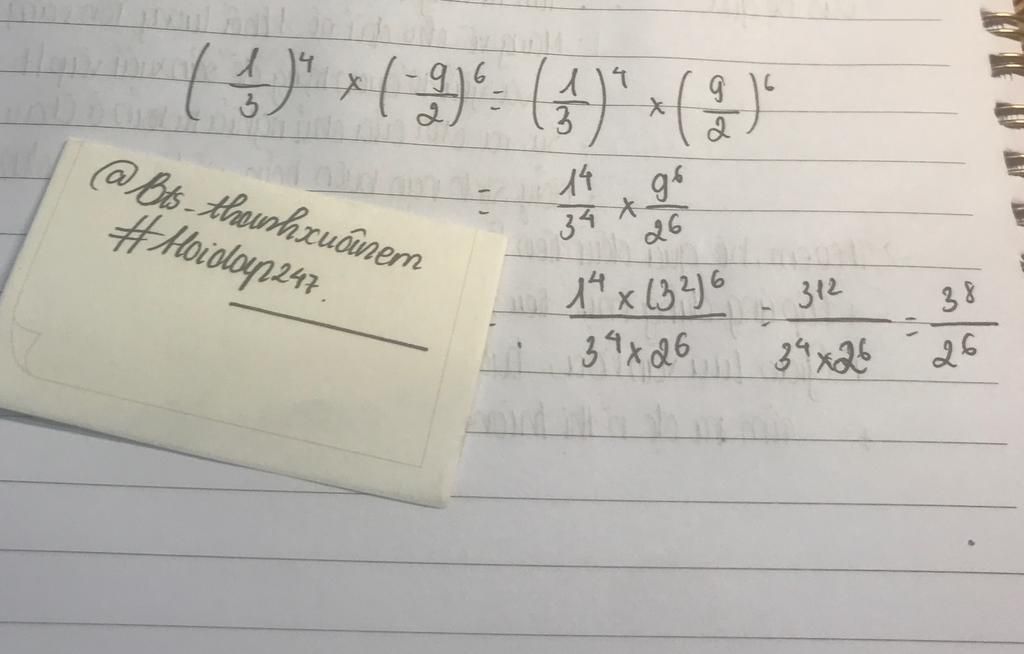 (1/3)^4 × (-9/2)^6 = (1/3)^4 × (9/2)^6
= 1^4/3^4 × 9^6/2^6
= (1^4 × (3^2)^6)/(3^4 × 2^6) = 3^12/(3^4 × 2^6) = 3^8/2^6
@Bts_thanhxuânem
#Hoidap247.